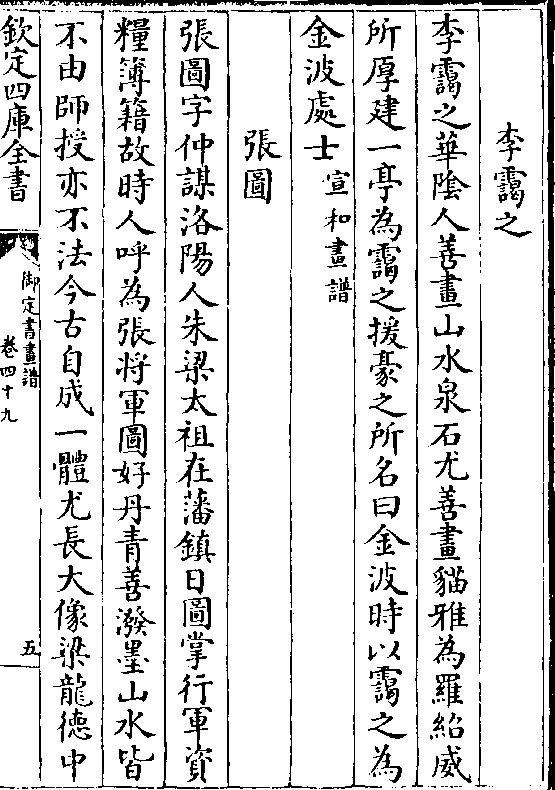 李靄之
李靄之華陰人善畫山水泉石尤善畫貓雅為羅紹威
所厚建一亭為靄之援豪之所名曰金波時以靄之為
金波處士宣和畫譜
張圖
張圖字仲謀洛陽人朱梁太祖在藩鎮日圖掌行軍資
糧簿籍故時人呼為張将軍圖好丹青善潑墨山水皆
不由師授亦不法今古自成一體尤長大像梁龍德中
欽定四庫全書
御定書畫譜
卷四十九
五